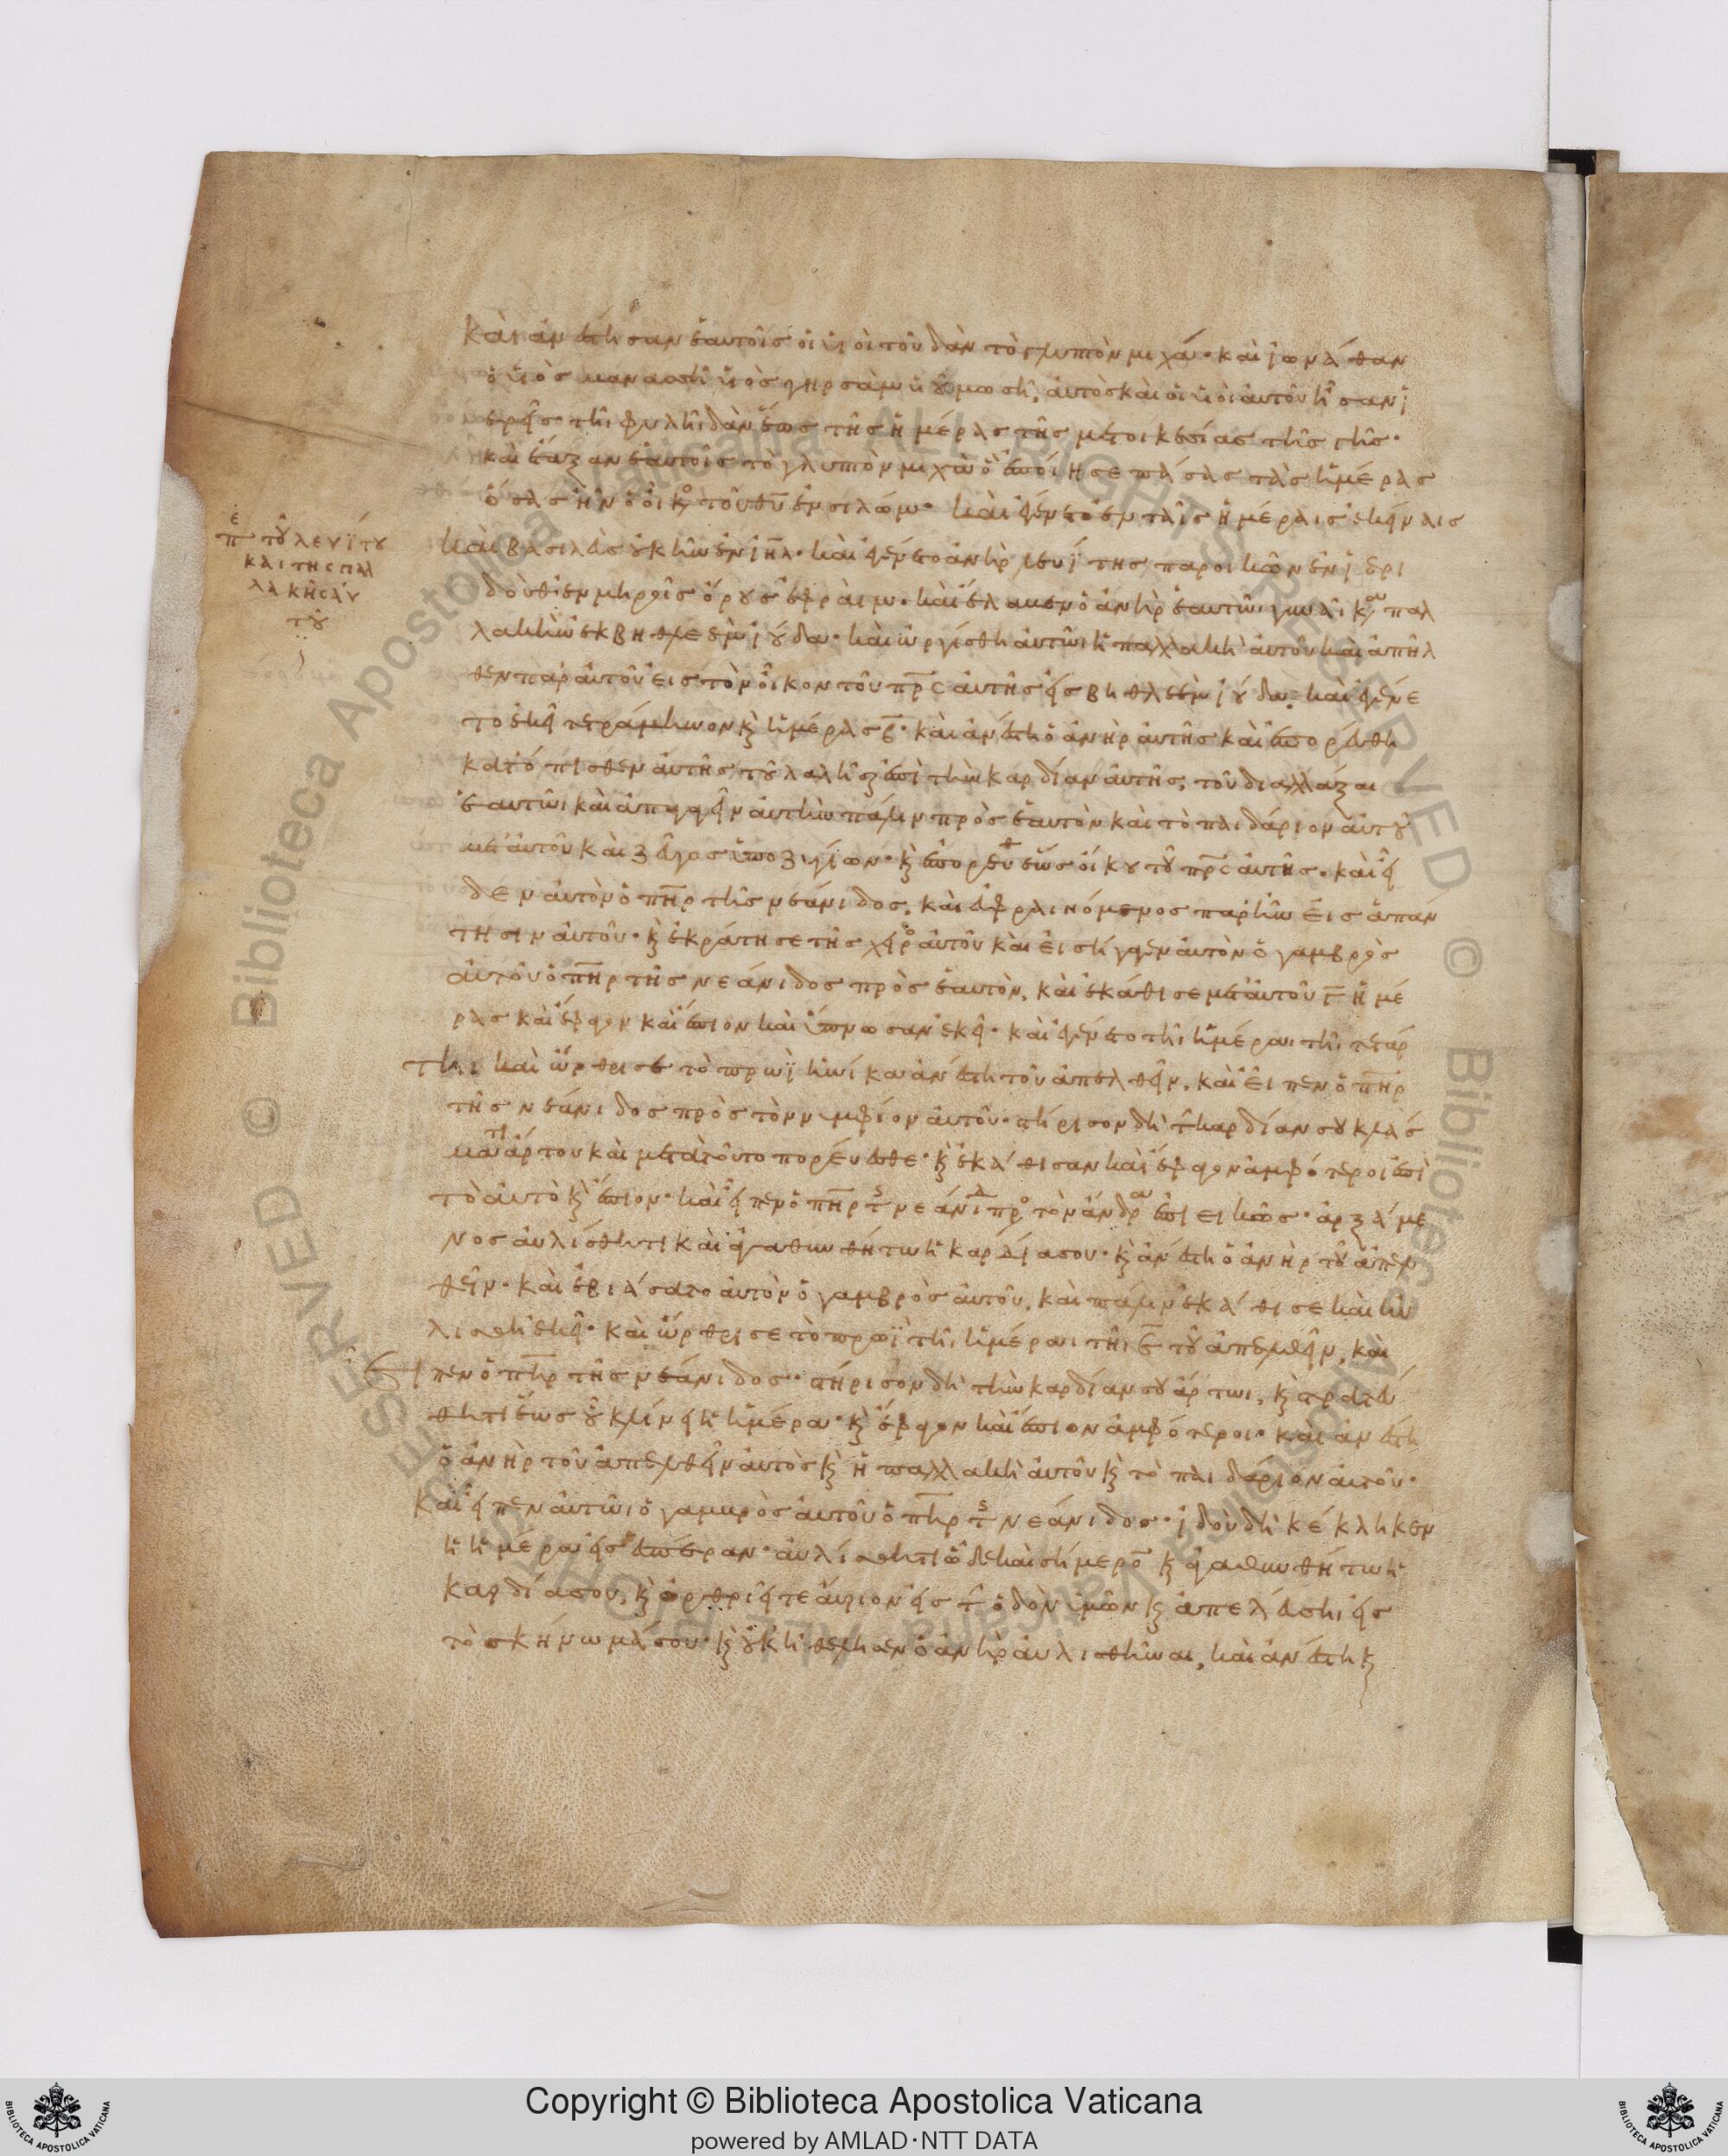 Καὶ ἀνέστησαν ἑαυτοῖς οἱ υἱοὶ τοῦ δὰν τὸ γλυπτὸν μιχά· καὶ ἰωνάθαν
ὁ υἱὸς μανασσῆ υἱὸς γηρσὰμ υἱοῦ μωσῆ, αὐτὸς καὶ οἱ υἱοὶ αὐτοῦ ἦσαν ἱ
ερεῖς τῆι φυλῆι δὰν ἕως τῆς ἡμέρας τῆς μετοικεσίας τῆς γῆς·
καὶ ἔταξαν ἑαυτοῖς τὸ γλυπτὸν μιχὰ ὃ ἐποίησε πάσας τὰς ἡμέρας
ὅσας ἦν ὁ οἶκο τοῦ θυ ἐν σιλώμ· καὶ ἐγένετο ἐν ταῖς ἡμέραις ἐκείναις
καὶ βασιλεὺς οὐκ ἦν ἐν ιηλ· καὶ ἐγένετο ἀνὴρ λευίτης παροικῶν ἐν ἰερι
δοὺθ ἐν μηροῖς ὄρους ἐφράιμ· καὶ ἔλαβεν ὁ ἀνὴρ ἑαυτῶι γυναῖκα παλ
λακὴν ἐκ βηθλεὲμ ἰούδα· καὶ ὠργίσθη αὐτῶι ἡ παλλακὴ αὐτοῦ καὶ ἀπῆλ
θεν παρ' αὐτοῦ εἰς τὸν οἶκον τοῦ πρς αὐτῆς εἰς βηθλεὲμ ἰούδα· καὶ ἐγένε
το ἐκεῖ τετράμηνον καὶ ἡμέρας· καὶ ἀνέστη ὁ ἀνὴρ αὐτῆς καὶ ἐπορεύθη
κατόπισθεν αὐτῆς τοῦ λαλῆσαι ἐπὶ τὴν καρδίαν αὐτῆς, τοῦ διαλλάξαι
ἑαυτῶι καὶ ἀπαγαγεῖν αὐτὴν πάλιν πρὸς ἑαυτὸν καὶ τὸ παιδάριον αὐτοῦ
μετ' αὐτοῦ καὶ ζεῦγος ὑποζυγίων· καὶ ἐπορεύετο ἕως οἴκου τοῦ πρς αὐτῆς· καὶ εἶ
δεν αὐτὸν ὁ πηρ τῆς νεάνιδος, καὶ εὐφραινόμενος παρῆν εἰς ἀπάν
τησιν αὐτοῦ· καὶ ἐκράτησε τῆς χειρο αὐτοῦ καὶ εἰσήγαγεν αὐτὸν ὁ γαμβρὸς
αὐτοῦ ὁ πηρ τῆς νεάνιδος πρὸς ἑαυτὸν, καὶ ἐκάθισε μετ' αὐτοῦ γ ἡμέ
ρας καὶ ἔφαγον καὶ ἔπιον καὶ ὕπνωσαν ἐκεῖ· καὶ ἐγένετο τῆι ἡμέραι τῆι τετάρ
τηι καὶ ὤρθρισε τὸ πρωῒ ἡνίκα ἀνέστη τοῦ ἀπελθεῖν, καὶ εἶπεν ὁ πηρ
τῆς νεάνιδος πρὸς τὸν νυμφίον αὐτοῦ· στήρισον δὴ τὴν καρδίαν σου κλάς
ματι ἄρτου καὶ μετὰ τοῦτο πορεύεσθε· καὶ ἐκάθισαν καὶ ἔφαγον ἀμφότεροι ἐπὶ
τὸ αὐτὸ καὶ ἔπιον· καὶ εἶπεν ὁ πηρ τῆς νεάνιδ πρὸ τὸν ἄνδρα ἐπιεικῶς· ἀρξάμε
νος αὐλίσθητι καὶ ἀγαθυνθήτω ἡ καρδία σου· καὶ ἀνέστη ὁ ἀνὴρ τοῦ ἀπελ
θεῖν· καὶ ἐβιάσατο αὐτὸν ὁ γαμβρὸς αὐτοῦ, καὶ πάλιν ἐκάθισε καὶ ηὐ
λίσθη ἐκεῖ· καὶ ὤρθρισε τὸ πρωῒ τῆι ἡμέραι τῆι ε τοῦ ἀπελθεῖν, καὶ
εἶπεν ὁ πηρ τῆς νεάνιδος· στήρισον δὴ τὴν καρδίαν σου ἄρτωι, καὶ στρατεύ
θητι ἕως οὗ κλίνει ἡ ἡμέρα· καὶ ἔφαγον καὶ ἔπιον ἀμφότεροι· καὶ ἀνέστη
ὁ ἀνὴρ τοῦ ἀπελθεῖν αὐτὸς καὶ ἡ παλλακὴ αὐτοῦ καὶ τὸ παιδάριον αὐτοῦ·
καὶ εἶπεν αὐτῶι ὁ γαμβρὸς αὐτοῦ ὁ πηρ τῆς νεάνιδος· ἰδοὺ δὴ κέκληκεν
ἡ ἡμέρα εἰς ἑσπέραν· αὐλίσθητι ὧδε καὶ σήμερον καὶ ἀγαθυνθήτω ἡ
καρδία σου, καὶ ὀρθριεῖτε αὔριον εἰς τὴν ὁδὸν ὑμῶν καὶ ἀπελεύσηι εἰς
τὸ σκήνωμά σου· καὶ οὐκ ἠθέλησεν ὁ ἀνὴρ αὐλισθῆναι, καὶ ἀνέστη καὶ
πε τοῦ λευίτου
καὶ της παλ
λακῆς αὐ
τοῦ